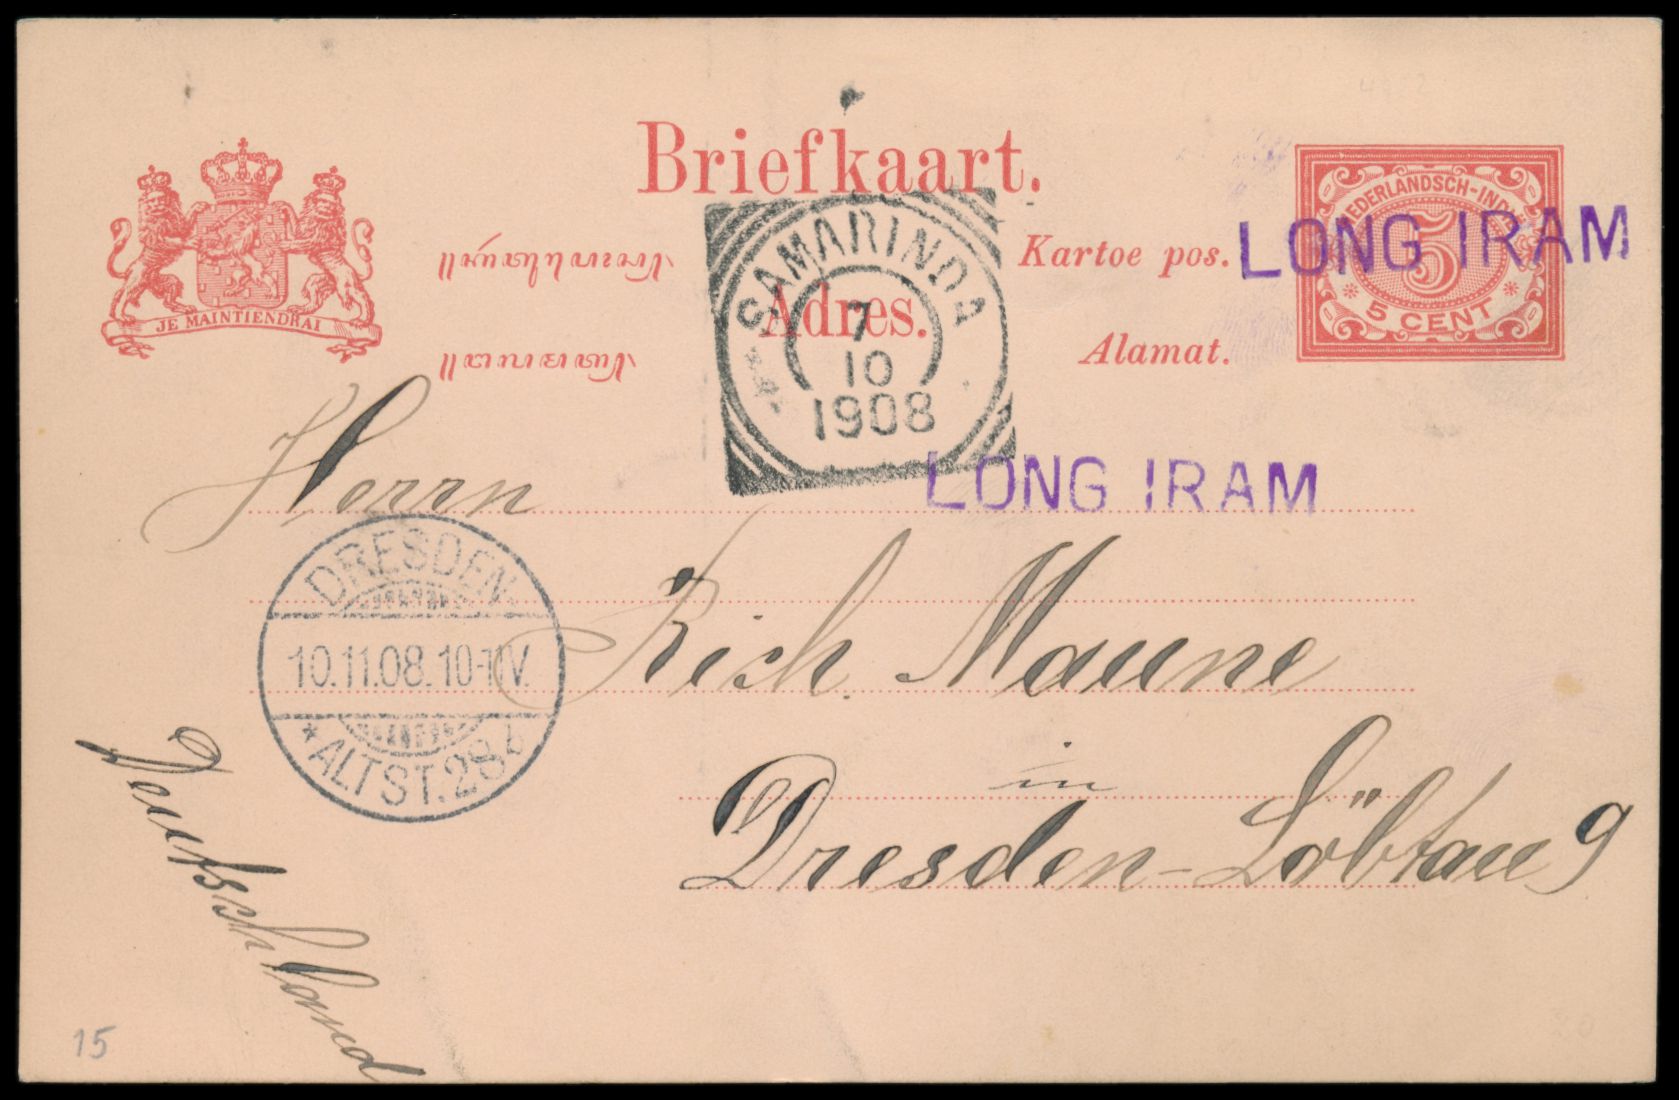 Briefkaart.
Kartoe pos.
Adres.
Alamat.
JE MAINTIENDRAI
NEDERLANDSCH-INDIË
5
5 CENT
LONG IRAM
SAMARINDA
7
10
1908
LONG IRAM
Herrn
Rich. Maune
in
Dresden-Löbtau 9
Deutschland
DRESDEN
10.11.08.10-11V.
* ALTST. 28 b
15